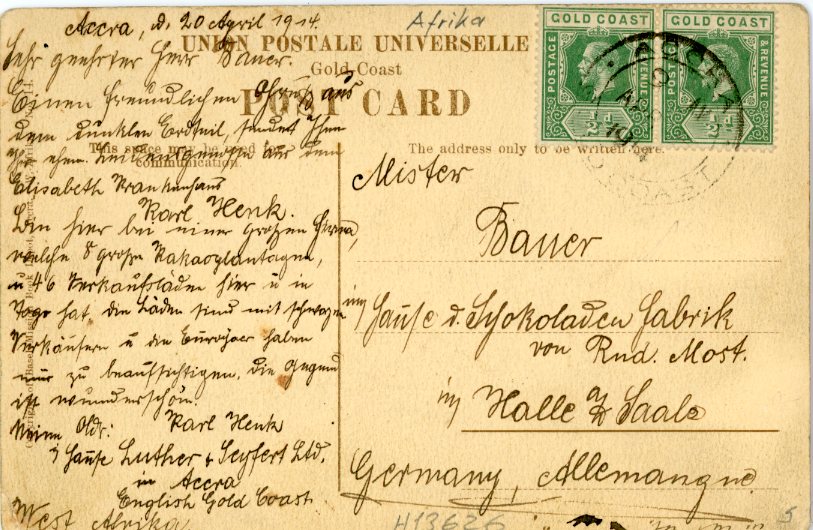 Afrika
Accra, d. 20 April 1914.
Sehr geehrter Herr Bauer.
Einen freundlichen Gruß aus
dem dunklen Erdteil, sendet Ihnen
aus dem
Elisabeth Krankenhaus
Karl Henk.
Bin hier bei einer großen Firma,
welche 8 große Kakaoplantagen,
u 46 Verkaufsläden hier u in
Togo hat, die Läden sind mit schwarzen
Verkäufern u die Europäer haben
nur zu beaufsichtigen. Die Gegend
ist wunderschön.
Meine Adr: Karl Henk
Hause Luther & Seyfert Ltd.
in Accra
English Gold Coast
West Afrika
UNION POSTALE UNIVERSELLE
Gold Coast
POST CARD
This space may be used for
communication.
The address only to be written here.
GOLD COAST
POSTAGE
& REVENUE
½d
GOLD COAST
POSTAGE
& REVENUE
½d
ACCRA
Mister
Bauer
im Hause d. Schokoladen Fabrik
von Rud. Most.
in Halle a/ Saale
Germany, Allemangne
H13626
5